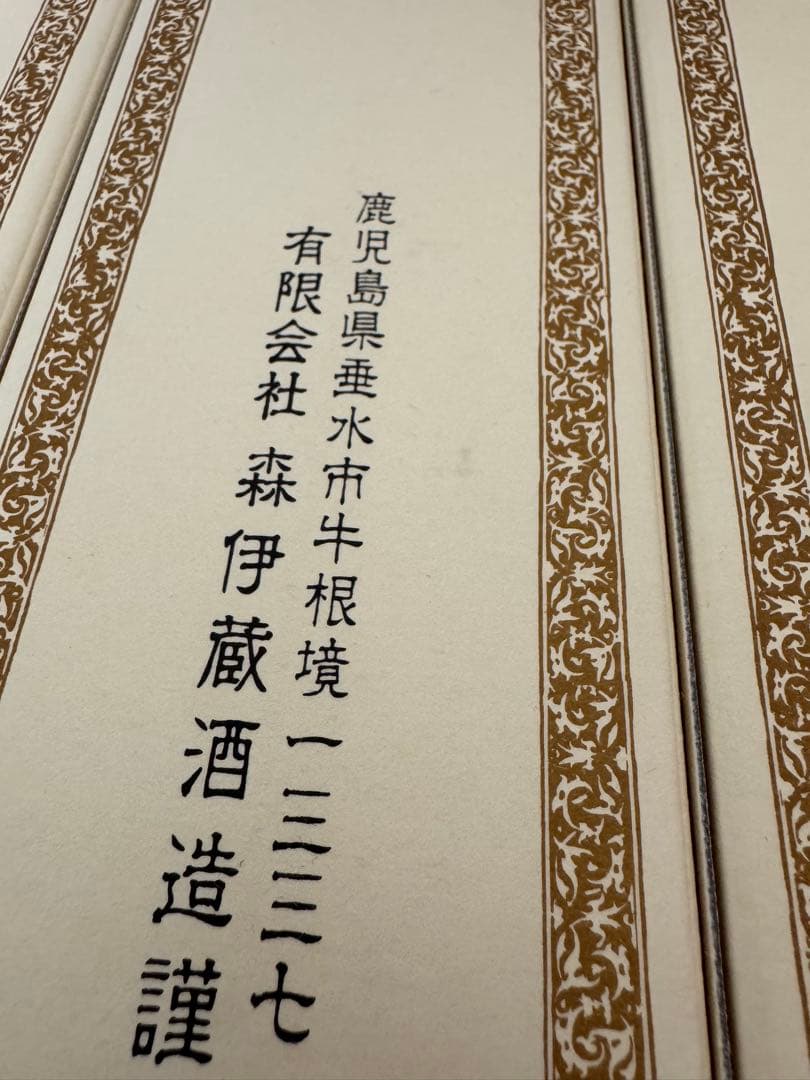 鹿児島県垂水市牛根境一三三七
有限会社 森伊蔵酒造謹